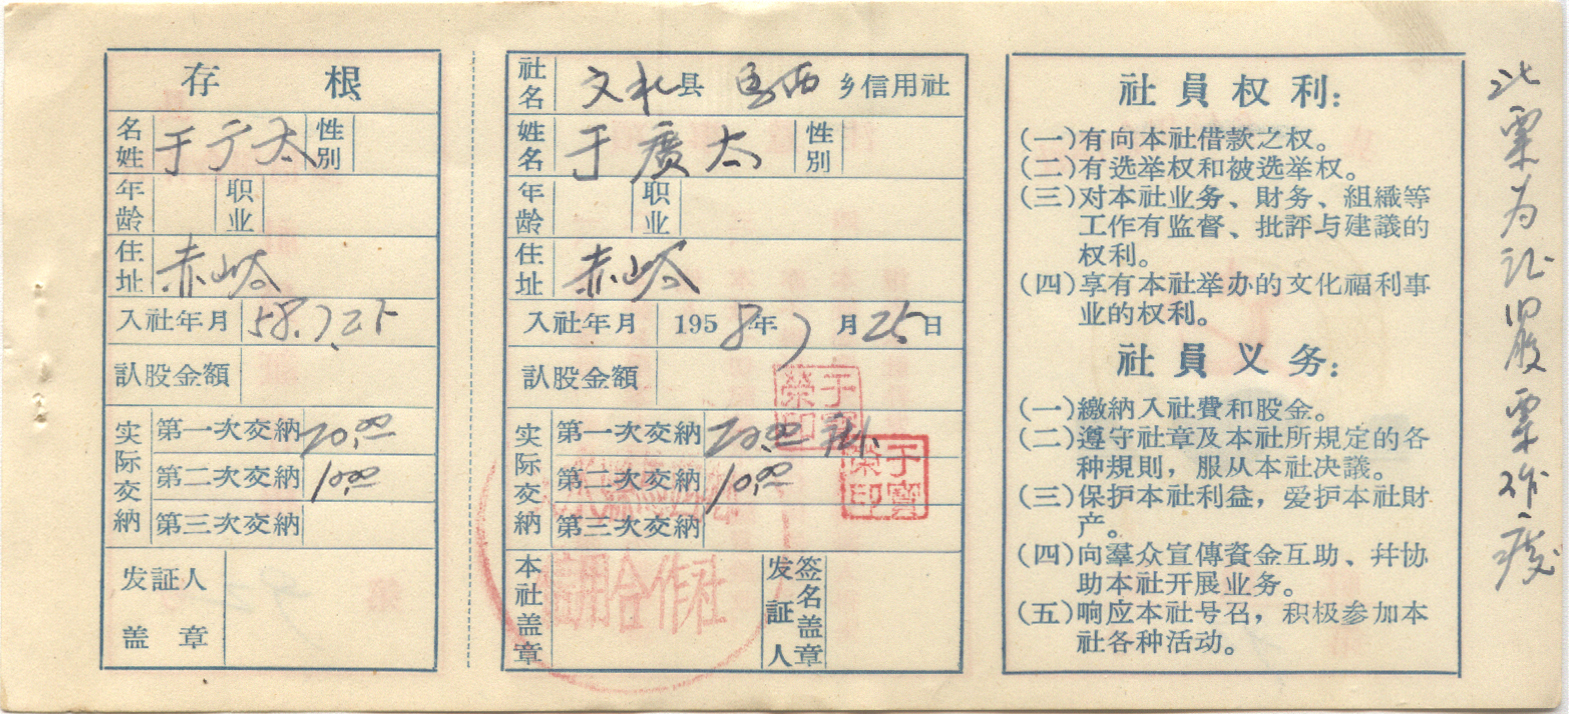 存 根
名姓 于广太 性別
年龄 职业
住址 赤峪
入社年月 58.7.25
認股金額
实际交納
第一次交納 20.00
第二次交納 10.00
第三次交納
发証人
盖 章
社名 文水县 马西乡信用社
姓名 于廣太 性別
年龄 职业
住址 赤峪
入社年月 1958年7月25日
認股金額
实际交納
第一次交納 20.00
第二次交納 10.00
第三次交納
本社盖章
发証人 签名盖章
于寶榮印
于寶榮印
信用合作社
社員权利：
(一)有向本社借款之权。
(二)有选举权和被选举权。
(三)对本社业务、財务、組織等
工作有监督、批評与建議的
权利。
(四)享有本社举办的文化福利事
业的权利。
社員义务：
(一)繳納入社費和股金。
(二)遵守社章及本社所規定的各
种規則，服从本社决議。
(三)保护本社利益，爱护本社財
产。
(四)向羣众宣傳資金互助、幷协
助本社开展业务。
(五)响应本社号召，积极参加本
社各种活动。
此票为证旧股票作废